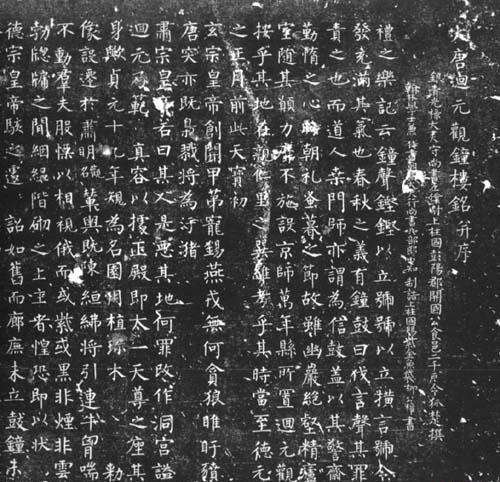 大唐迴元觀鐘樓銘并序
銀青光祿大夫守尚書左僕射上柱國彭陽郡開國公食邑二千戶令狐楚撰
翰林學士兼侍書朝議大夫行尚書兵部郎中知制誥上柱國賜紫金魚袋柳公權書
禮之樂記云鐘聲鏗鏗以立號號以立橫言號令
發充滿其氣也春秋之義有鐘鼓曰伐言聲其罪
責之也而道人桑門師亦謂為信鼓蓋以其警齋
勤惰之心時朝礼蚤暮之節故雖幽巖絕壑精廬
室隨其願力靡不施設京師萬年縣所置迴元觀
按乎其地在親仁里之巽維考乎其時當至德元
之正月前此天寶初
玄宗皇帝創開甲第寵錫燕戎無何貪狼睢盱豶
唐突亦既梟戮將為汙瀦
肅宗皇帝若曰其人是惡其地何罪改作洞宮謚
迴元乃範真容以據正殿即太一天尊之座其
身歟貞元十九年規為名園用植珍木敕
像設遷於肅明觀輦輿既陳絙紼將引連牛胷喘
不動羣夫股慄以相視俄而或紫或黑非煙非雲
勃牕牖之間絪縕階砌之上主者惶恐即以狀
德宗皇帝駭之遽詔如舊而廊廡未立鼓鐘未